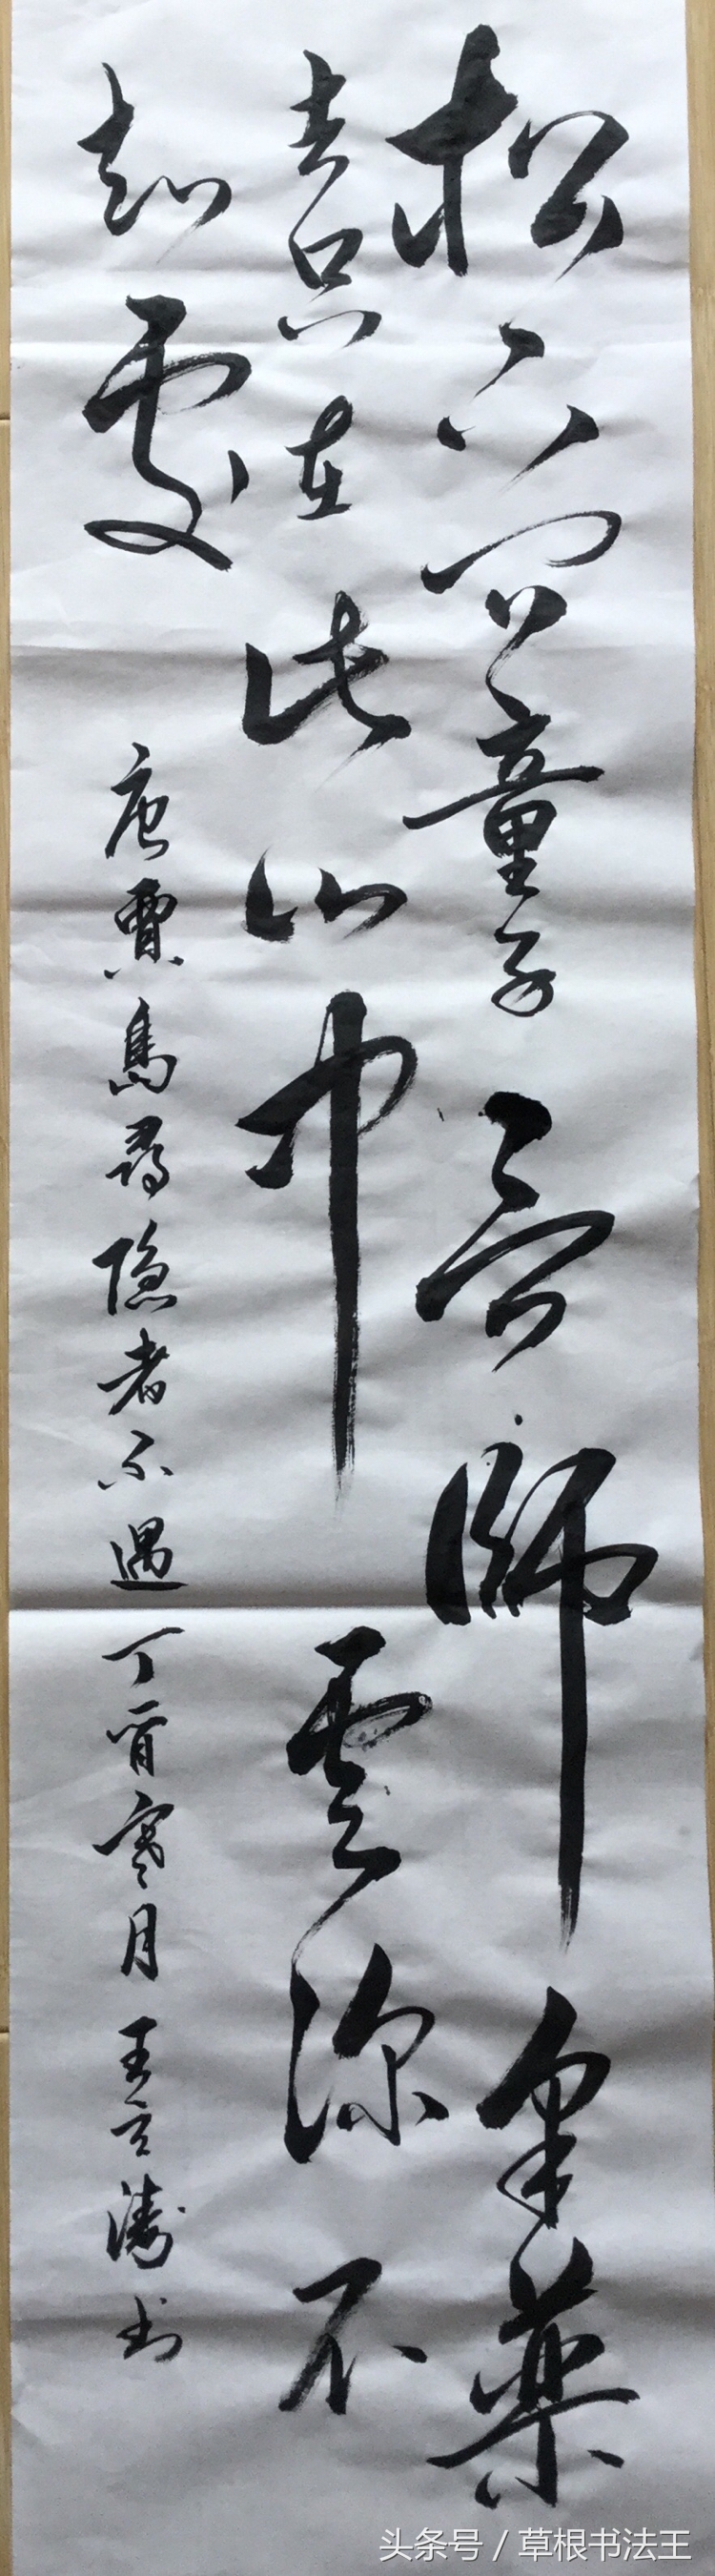 松下问童子言師采藥
去只在此山中雲深不
知處
唐賈島尋隐者不遇丁酉寒月王立涛书
头条号 / 草根书法王